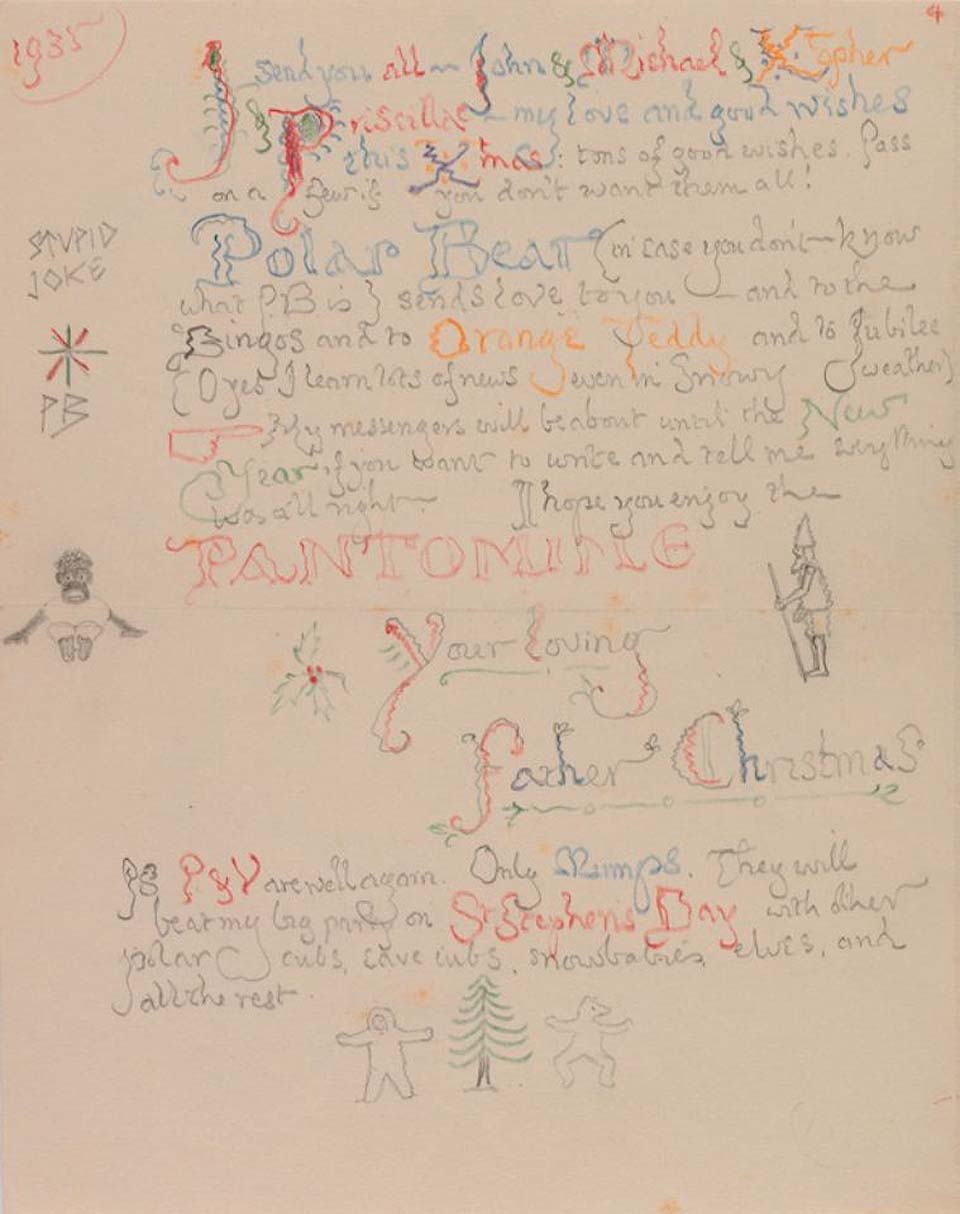 1935
4
I send you all — John & Michael & Xtopher
& Priscilla — my love and good wishes
this Xmas: tons of good wishes. Pass
on a few if you don't want them all!
Polar Bear (in case you don't know
what PB is) sends love to you — and to the
STVPID
JOKE
PB
Bingos and to Orange Teddy and to Jubilee
(O yes I learn lots of news even in Snowy weather)
My messengers will be about until the New
Year if you want to write and tell me everything
was all right. I hope you enjoy the
PANTOMIME
Your loving
Father Christmas
PS P & V are well again. Only Mumps. They will
be at my big party on St Stephen's Day with other
polar cubs, cave cubs, snowbabies, elves, and
all the rest.